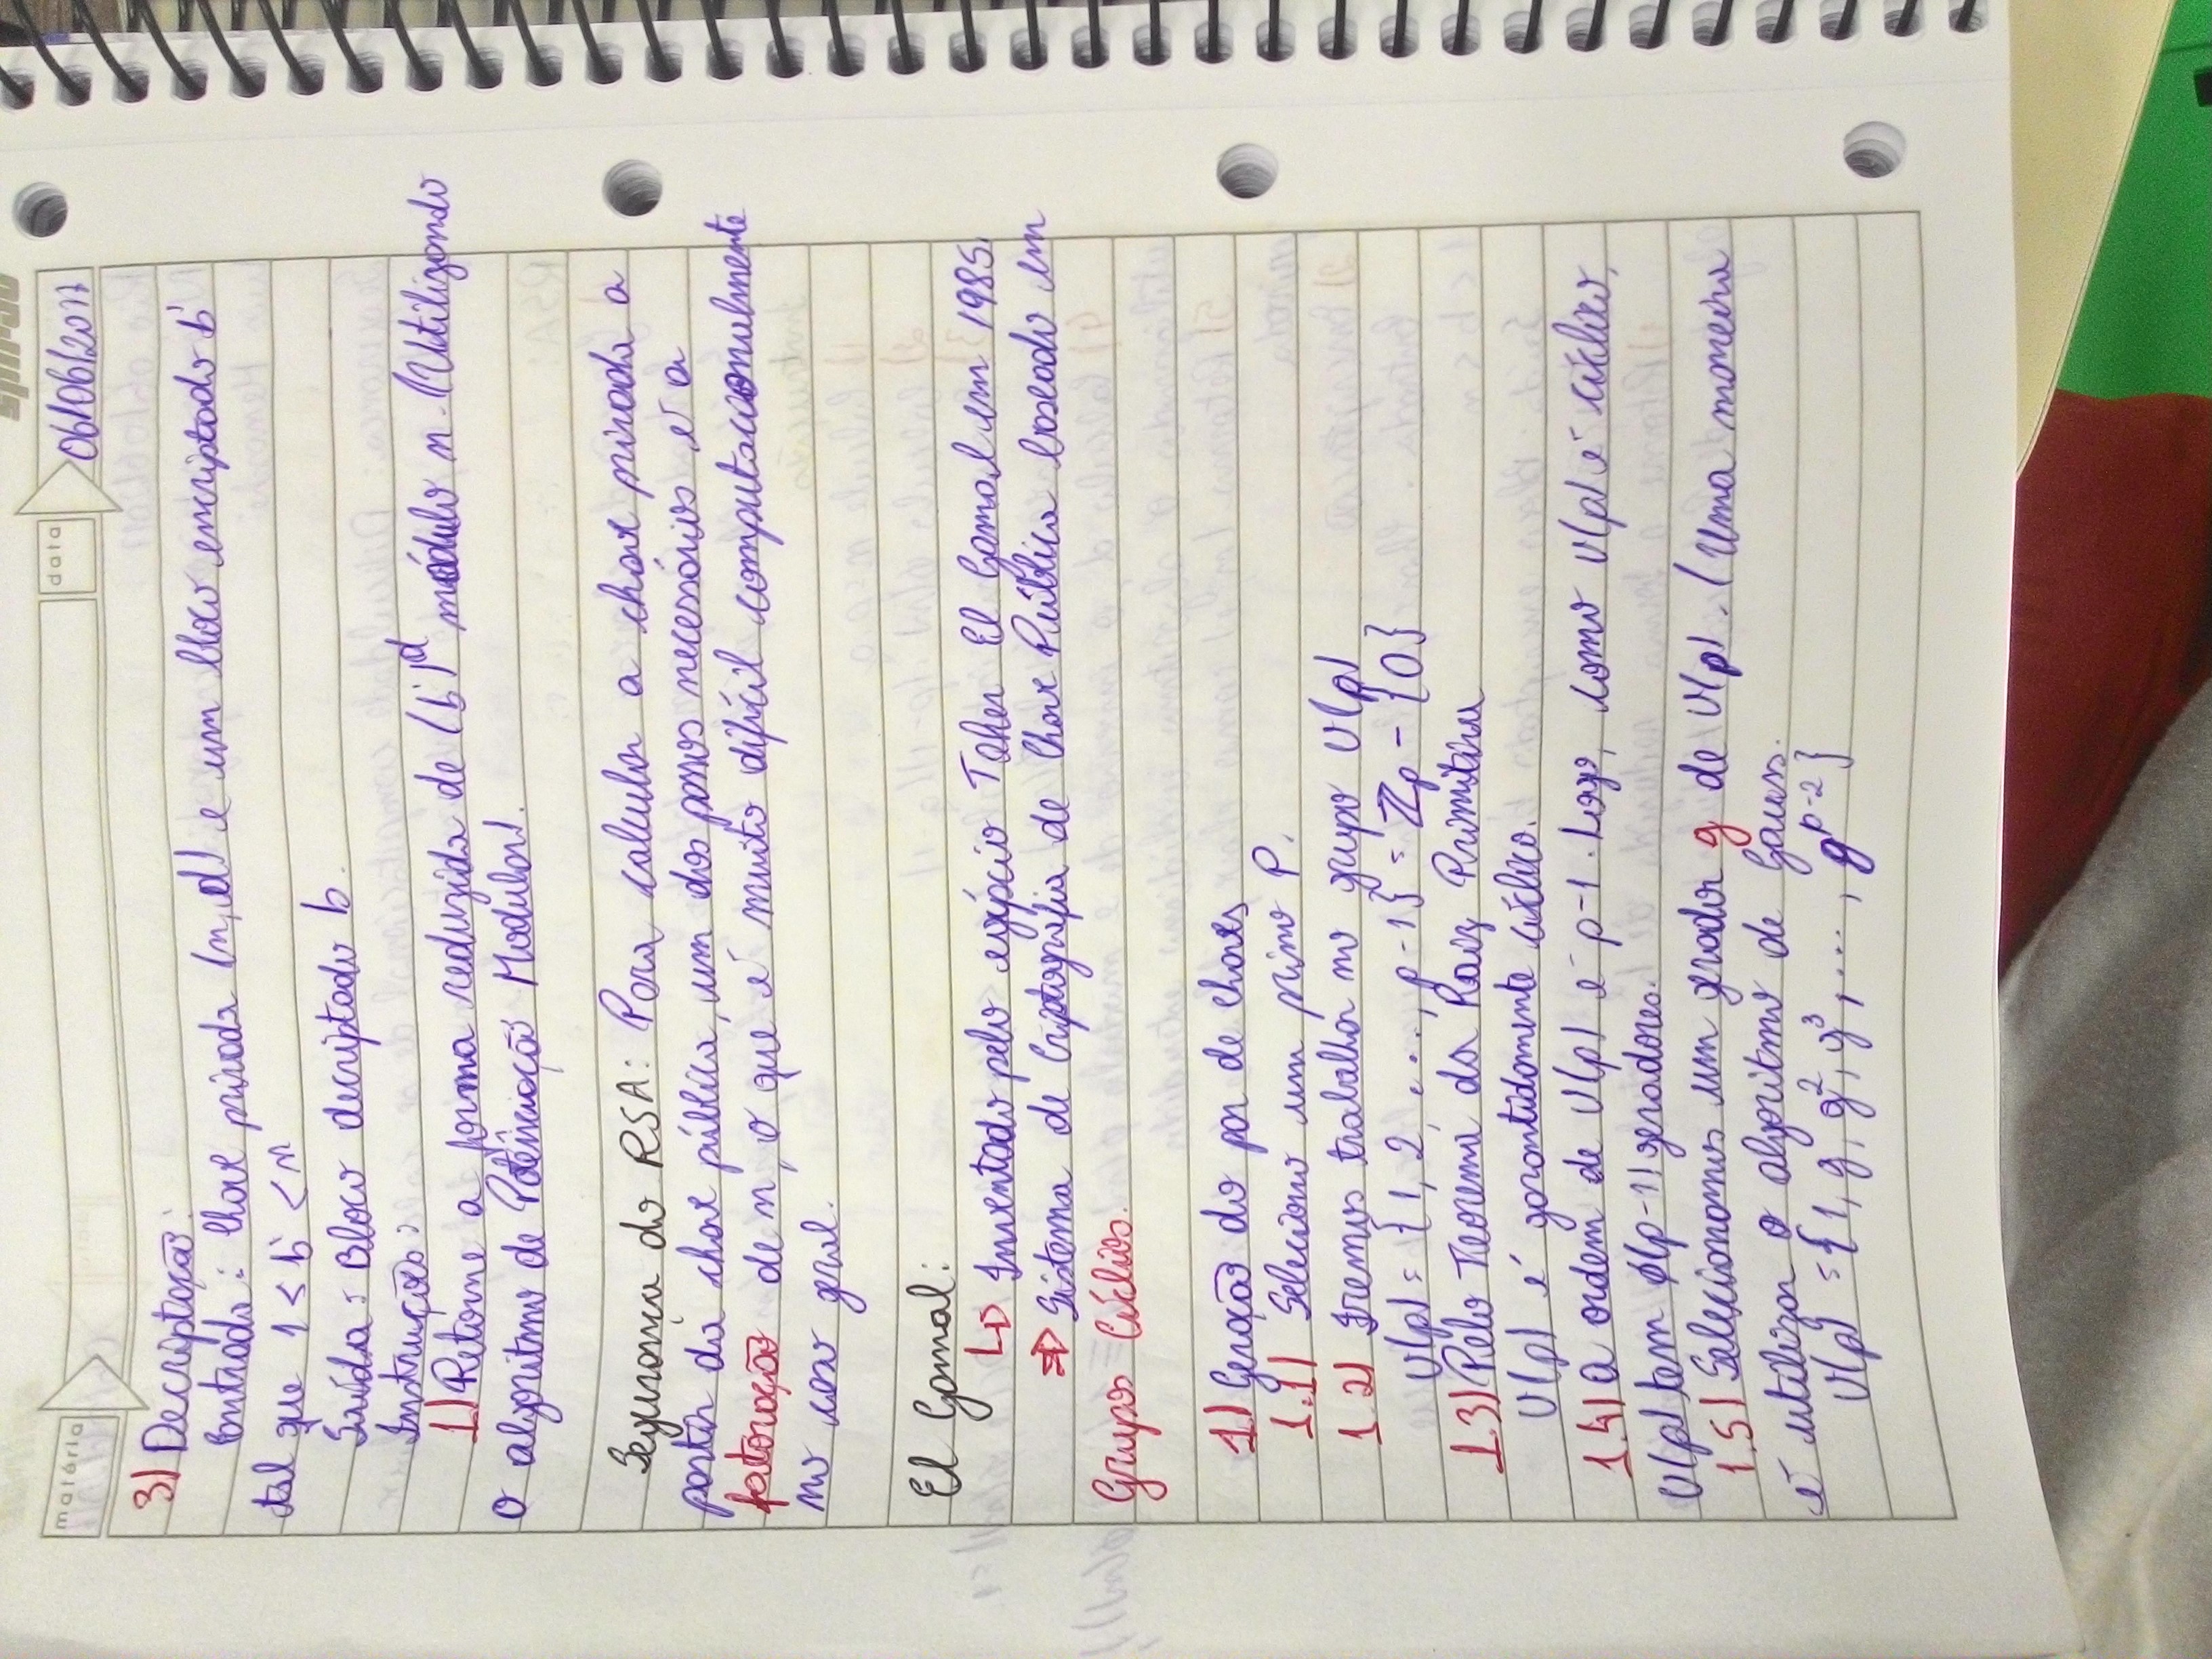 spiral
matéria
data
06/06/2017
3) Decriptação:
Entrada: Chave privada (n, d) e um bloco encriptado b'
tal que 1 ≤ b' < n
Saída: Bloco decriptado b.
Instruções:
1) Retorne a forma reduzida de (b')^d módulo n. (Utilizando
o algoritmo de Potênciação Modular).
Segurança do RSA: Para calcular a chave privada a
partir da chave pública, um dos passos necessários é a
fatoração de n, o que é muito difícil computacionalmente
no caso geral.
El Gamal:
↳ Inventado pelo egípcio Taher El Gamal em 1985.
⇒ Sistema de Criptografia de Chave Pública baseado em
Grupos Cíclicos.
1) Geração do par de chaves
1.1) Seleciono um primo P.
1.2) Iremos trabalhar no grupo U(p)
U(p) = {1, 2, ..., p-1} = ℤp - {0}
1.3) Pelo Teorema da Raiz Primitiva
U(p) é garantidamente cíclico.
1.4) A ordem de U(p) é p-1. Logo, como U(p) é cíclico,
U(p) tem ϕ(p-1) geradores.
1.5) Selecionamos um gerador g de U(p). (Uma maneira
é utilizar o algoritmo de Gauss.
U(p) = {1, g, g², g³, ..., g^(p-2)}